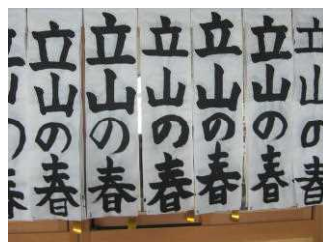 立山の春
立山の春
立山の春
立山の春
立山の春
立山の春
立山の春